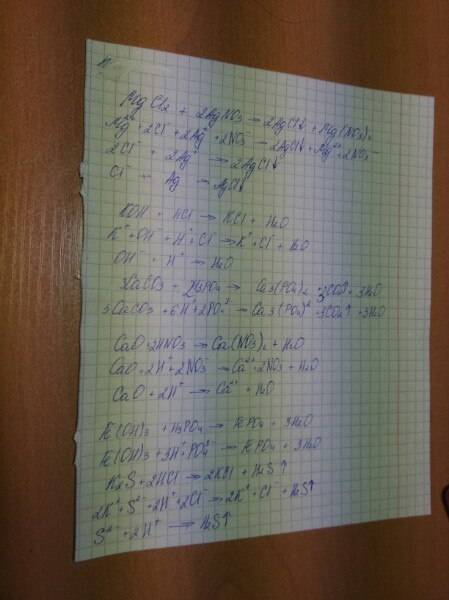 MgCl₂ + 2AgNO₃ → 2AgCl↓ + Mg(NO₃)₂
Mg²⁺ + 2Cl⁻ + 2Ag⁺ + 2NO₃⁻ → 2AgCl↓ + Mg²⁺ + 2NO₃⁻
2Cl⁻ + 2Ag⁺ → 2AgCl↓
Cl⁻ + Ag → AgCl↓
KOH + HCl → KCl + H₂O
K⁺ + OH⁻ + H⁺ + Cl⁻ → K⁺ + Cl⁻ + H₂O
OH⁻ + H⁺ → H₂O
3CaCO₃ + 2H₃PO₄ → Ca₃(PO₄)₂ + 3CO₂↑ + 3H₂O
3CaCO₃ + 6H⁺ + 2PO₄³⁻ → Ca₃(PO₄)₂ + 3CO₂↑ + 3H₂O
CaO + 2HNO₃ → Ca(NO₃)₂ + H₂O
CaO + 2H⁺ + 2NO₃⁻ → Ca²⁺ + 2NO₃⁻ + H₂O
CaO + 2H⁺ → Ca²⁺ + H₂O
Fe(OH)₃ + H₃PO₄ → FePO₄ + 3H₂O
Fe(OH)₃ + 3H⁺ + PO₄³⁻ → FePO₄ + 3H₂O
K₂S + 2HCl → 2KCl + H₂S↑
2K⁺ + S²⁻ + 2H⁺ + 2Cl⁻ → 2K⁺ + Cl⁻ + H₂S↑
S²⁻ + 2H⁺ → H₂S↑